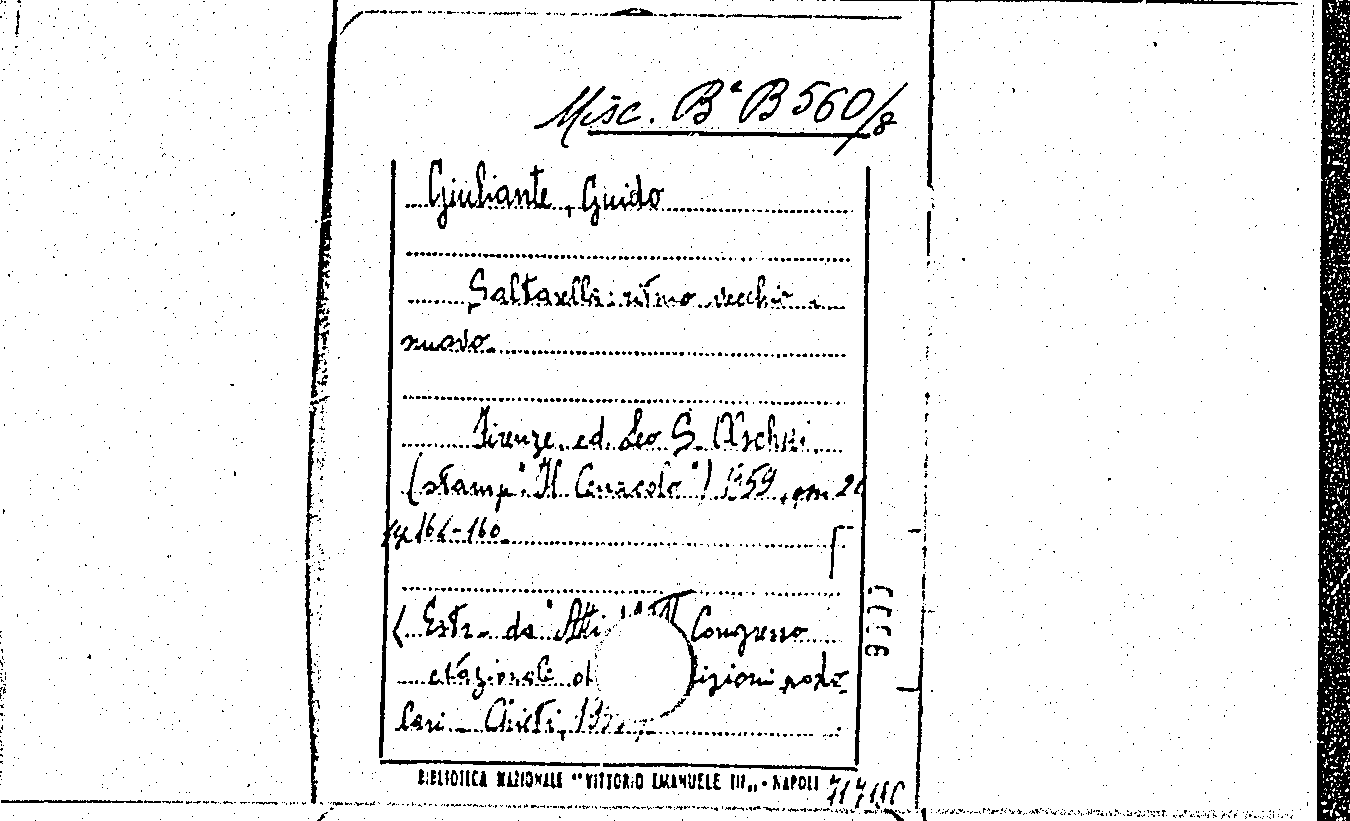 Misc. Bª B 560/8
Giuliante, Guido
Saltarella: ritmo vecchio e
nuovo.
Firenze, ed. Leo S. Olschki.
(stamp. "Il Cenacolo") 1959, cm
(Estr. da "Atti Congresso
nazionale izioni popo-
lari - Chieti,
BIBLIOTECA NAZIONALE "VITTORIO EMANUELE III„ - NAPOLI